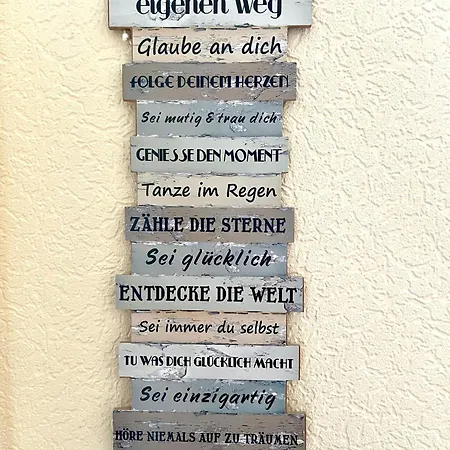 eigenen Weg
Glaube an dich
FOLGE DEINEM HERZEN
Sei mutig & trau dich
GENIESSE DEN MOMENT
Tanze im Regen
ZÄHLE DIE STERNE
Sei glücklich
ENTDECKE DIE WELT
Sei immer du selbst
TU WAS DICH GLÜCKLICH MACHT
Sei einzigartig
HÖRE NIEMALS AUF ZU TRÄUMEN